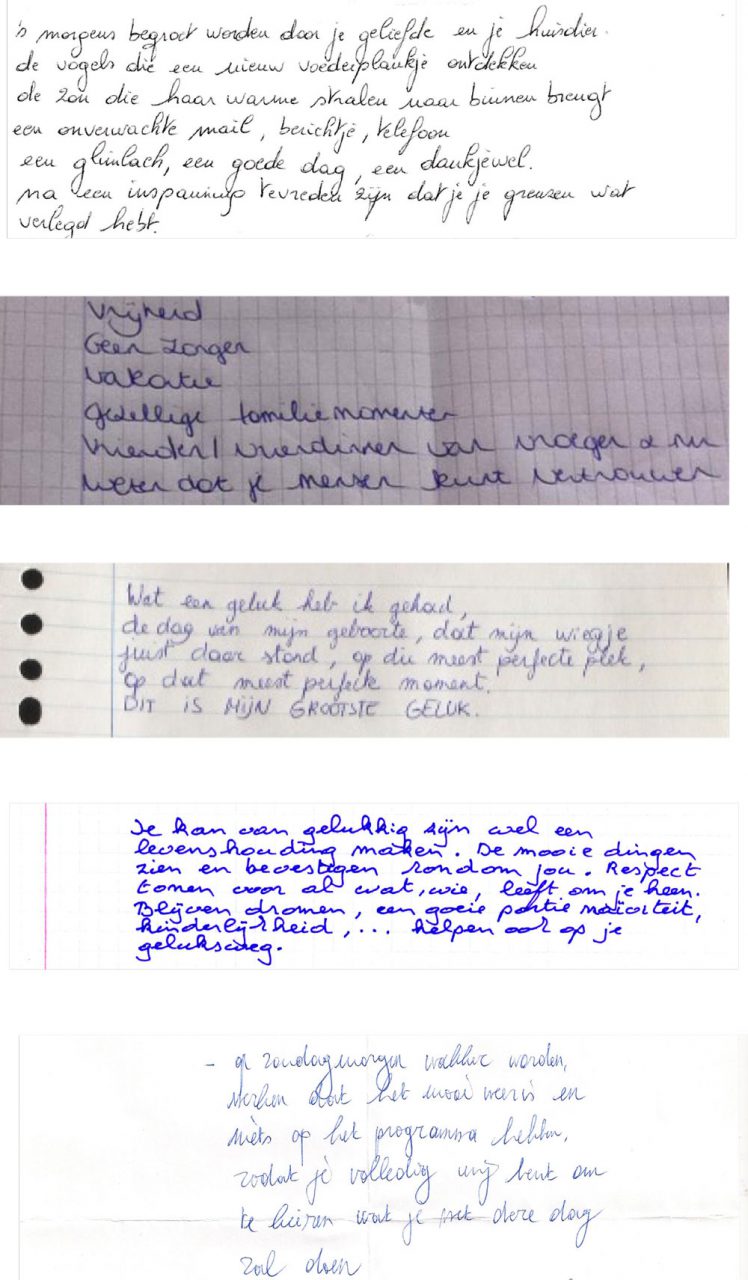 's morgens begroet worden door je geliefde en je huisdier.
de vogels die een nieuw voederplankje ontdekken
de zon die haar warme stralen naar binnen brengt
een onverwachte mail, berichtje, telefoon
een glimlach, een goede dag, een dankjewel.
na een inspanning tevreden zijn dat je je grenzen wat
verlegd hebt.
Vrijheid
Geen zorgen
Vakantie
gezellige familiemomenten
Vrienden/vriendinnen van vroeger & nu
weten dat je mensen kunt vertrouwen
Wat een geluk heb ik gehad,
de dag van mijn geboorte, dat mijn wiegje
juist daar stond, op die meest perfecte plek,
op dat meest perfecte moment.
DIT IS MIJN GROOTSTE GELUK.
Je kan van gelukkig zijn wel een
levenshouding maken. De mooie dingen
zien en bevestigen rondom jou. Respect
tonen voor al wat, wie, leeft om je heen.
Blijven dromen, een goeie portie naïviteit,
kinderlijkheid, ... helpen ook op je
geluksweg.
- op zondagmorgen wakker worden,
merken dat het mooi weer is en
niets op het programma hebben,
zodat je volledig vrij bent om
te kiezen wat je met deze dag
zal doen